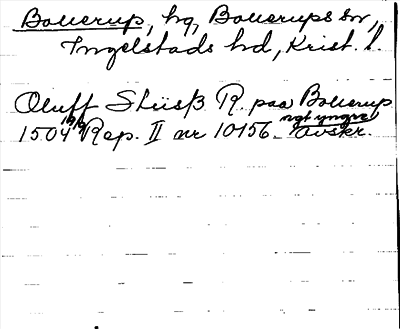 Bollerup, hg, Bollerups sn,
Ingelstads hd, Krist. l.
Oluff Stiisß R. paa Bollerup
1504 19/9 Rep. II nr 10156. ngt yngre avskr.